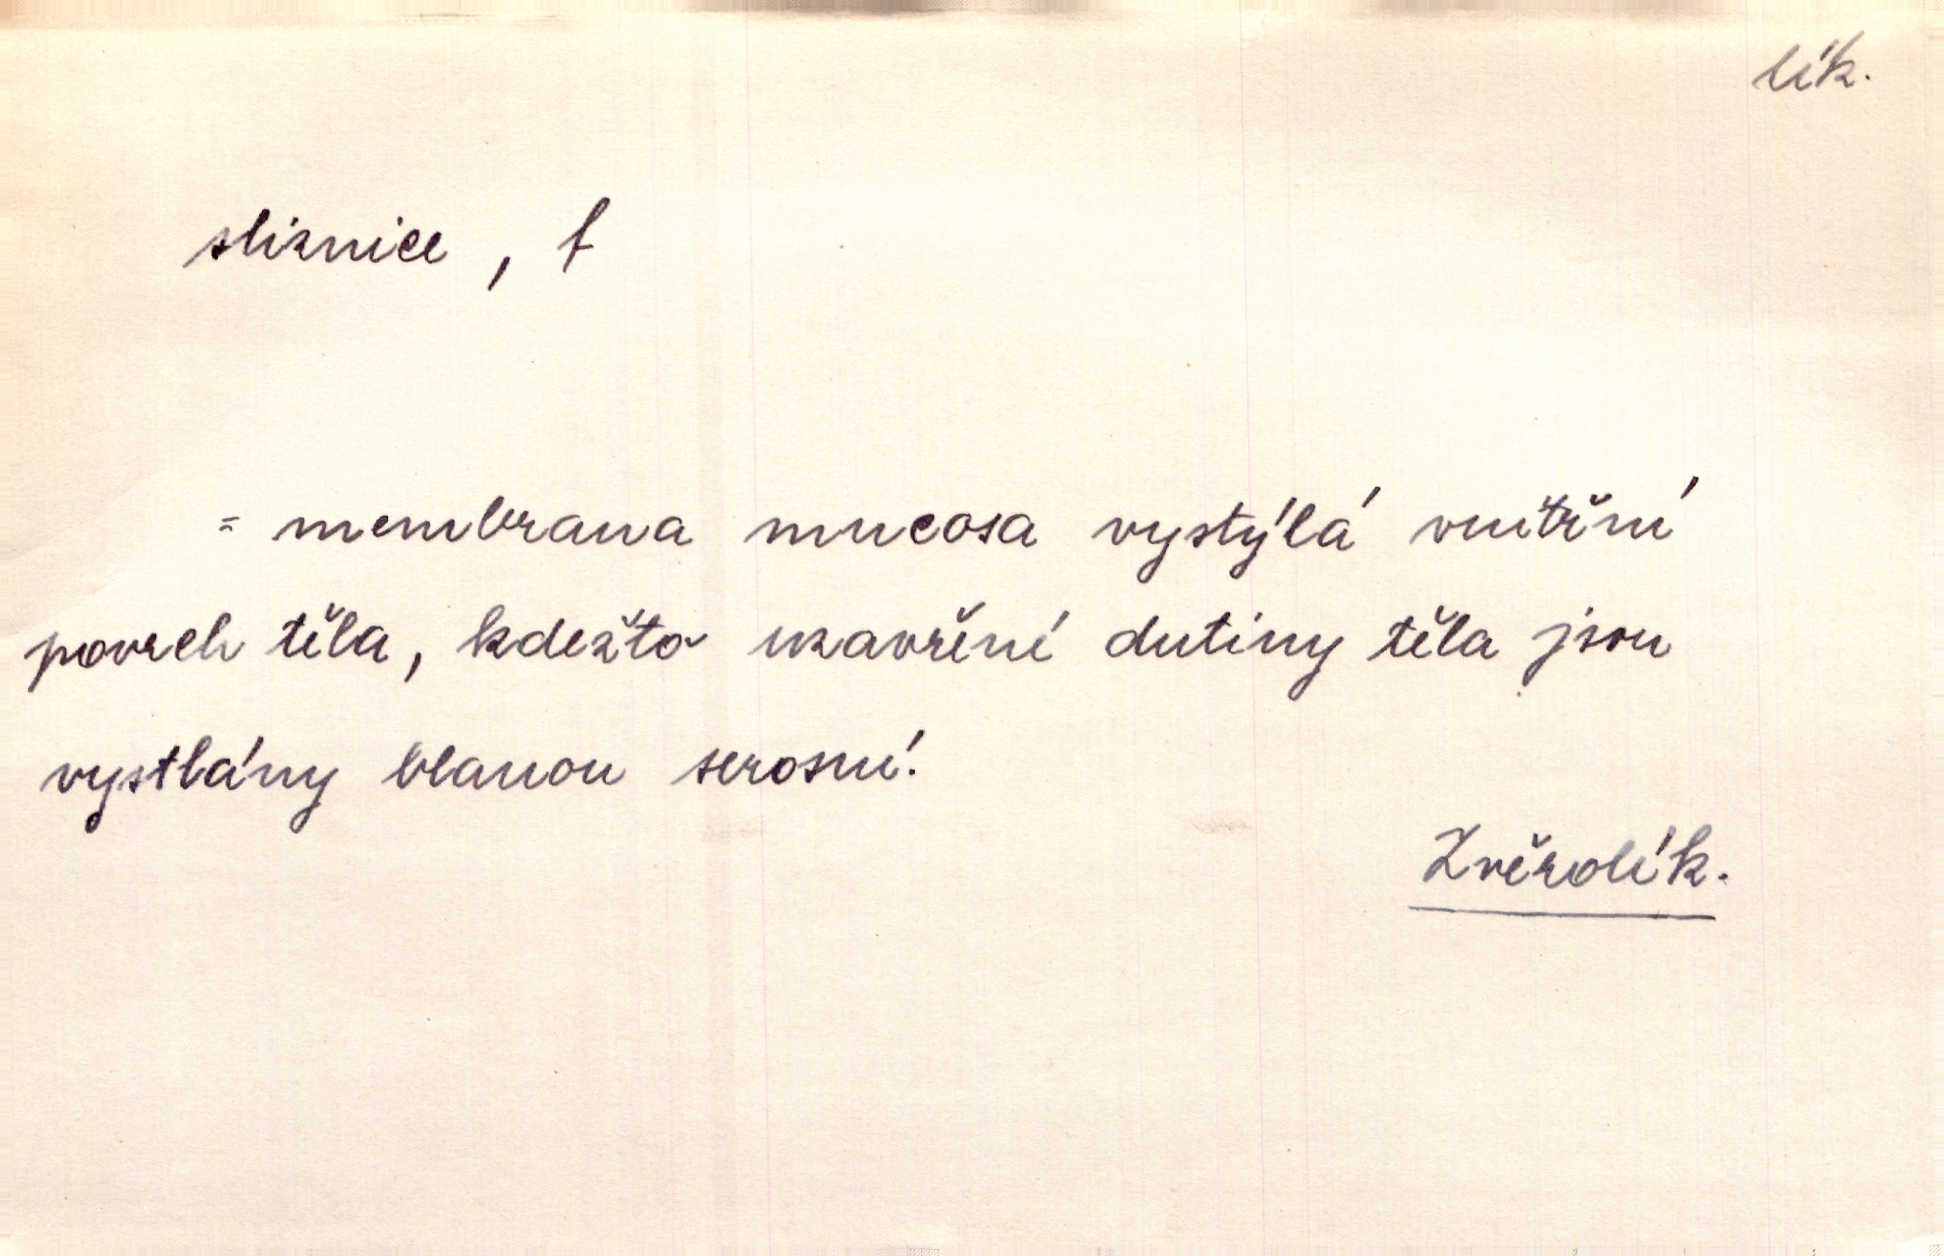 lék.
sliznice, f
= membrana mucosa vystýlá vnitřní
povrch těla, kdežto uzavřené dutiny těla jsou
vystlány blanou serosní.
Zvěrolék.